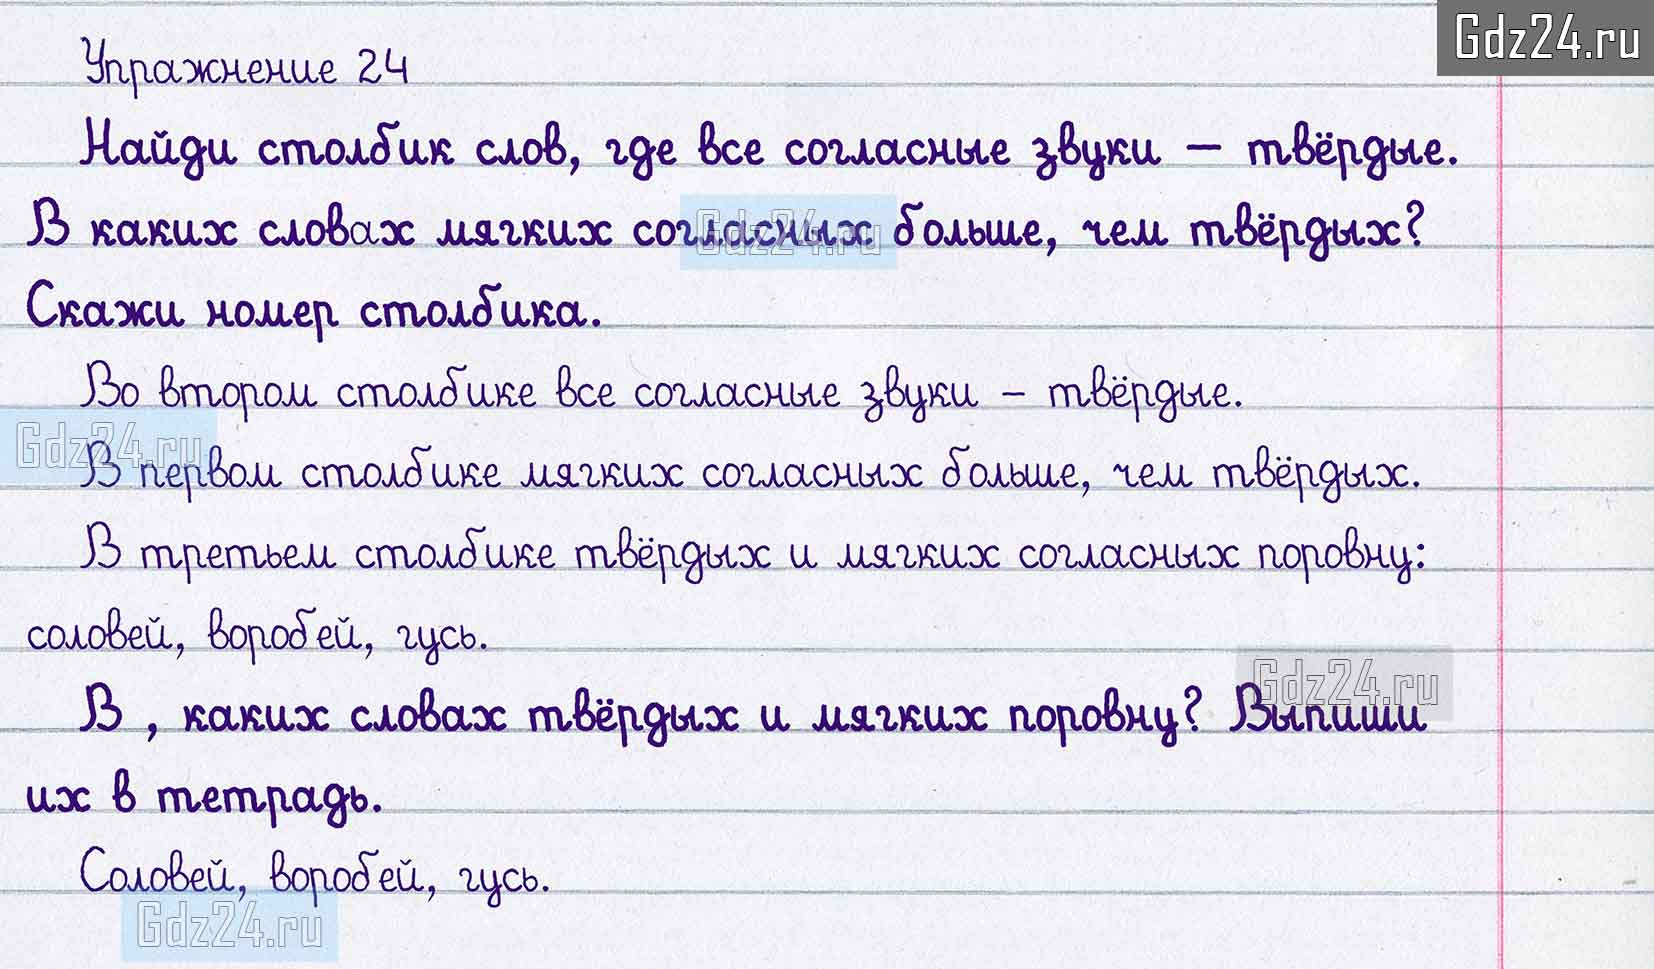 Gdz24.ru
Упражнение 24
Найди столбик слов, где все согласные звуки — твёрдые.
В каких словах мягких согласных больше, чем твёрдых?
Gdz24.ru
Скажи номер столбика.
Во втором столбике все согласные звуки – твёрдые.
Gdz24.ru
В первом столбике мягких согласных больше, чем твёрдых.
В третьем столбике твёрдых и мягких согласных поровну:
соловей, воробей, гусь.
Gdz24.ru
В , каких словах твёрдых и мягких поровну? Выпиши
их в тетрадь.
Соловей, воробей, гусь.
Gdz24.ru